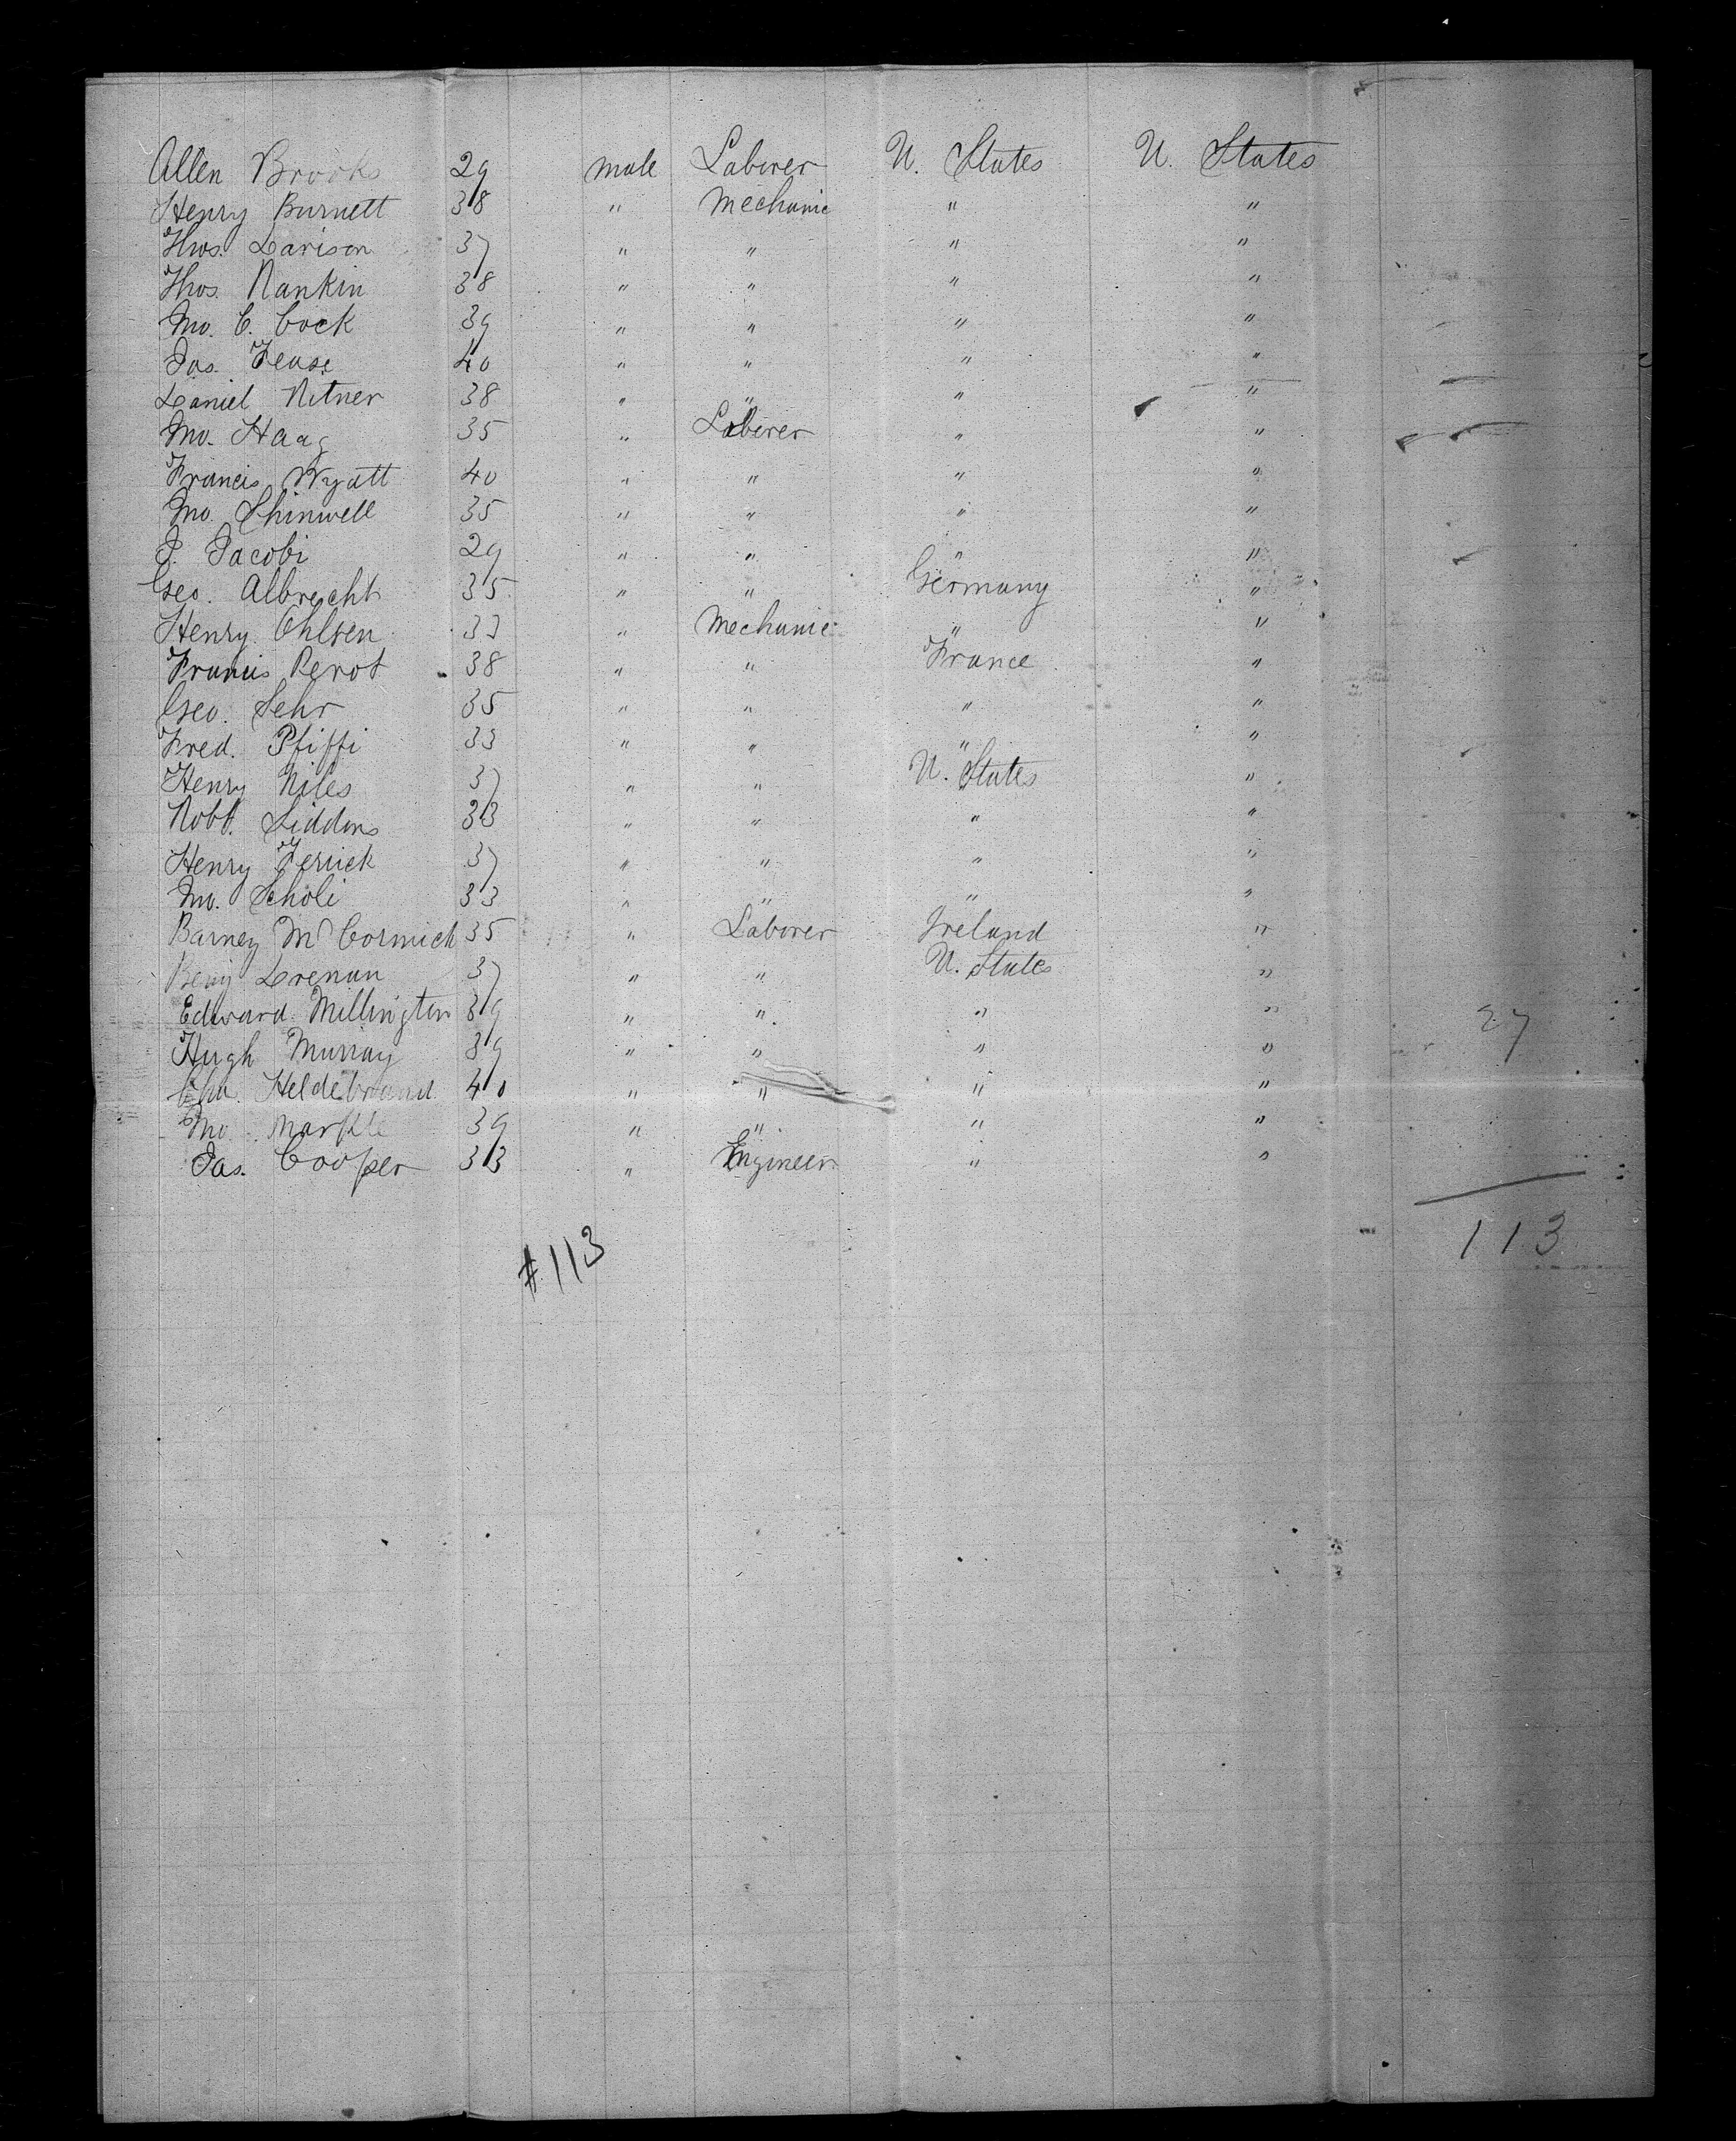 Allen Brooks 29 male Laborer U. States U. States
Henry Burnett 38 " Mechanic " "
Thos. Larison 37 " " " "
Thos. Rankin 38 " " " "
Jno. C. Cock 39 " " " "
Jas. Fease 40 " " " "
Daniel Ritner 38 " " " "
Jno. Haag 35 " Laborer " "
Francis Wyatt 40 " " " "
Jno. Shinwell 35 " " " "
J. Jacobi 29 " " " "
Geo. Albrecht 35 " " Germany "
Henry Ohlsen 33 " Mechanic " "
Francis Perot 38 " " France "
Geo. Sehr 35 " " " "
Fred. Pfiffi 33 " " " "
Henry Niles 37 " " U. States "
Robt. Siddons 33 " " " "
Henry Ferrick 37 " " " "
Jno. Scholi 33 " " " "
Barney McCormick 35 " Laborer Ireland "
Benj Drenan 37 " " U. States "
Edward Millington 39 " " " " 27
Hugh Murray 39 " " " "
Chr. Heldebrand 40 " " " "
Jno. Markle 39 " " " "
Jas. Cooper 33 " Engineer " "
113
#113